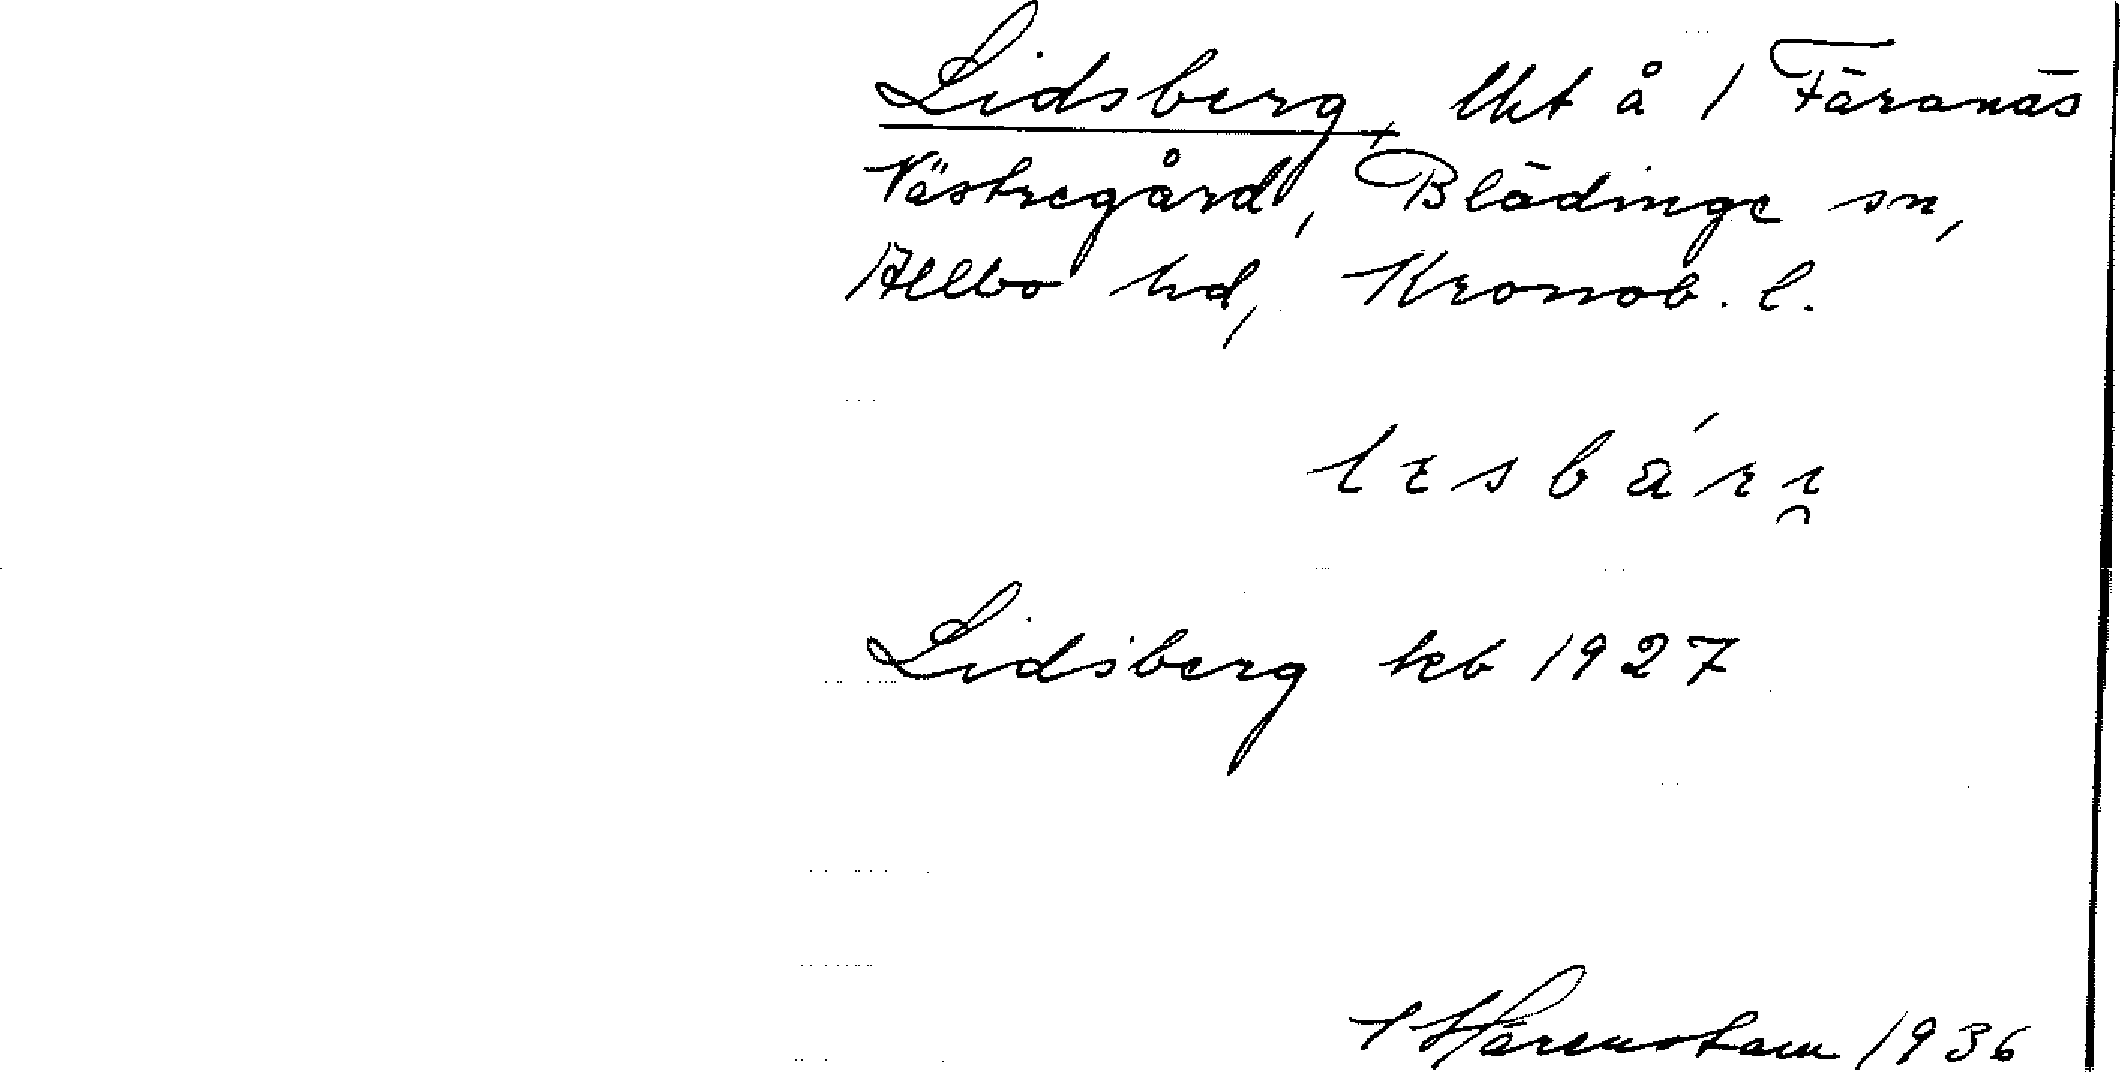 Lidsberg, lht å 1 Färanäs
Västregård, Blädinge sn,
Allbo hd, Kronob. l.
Lidsberg kb 1927
Härenstam 1936